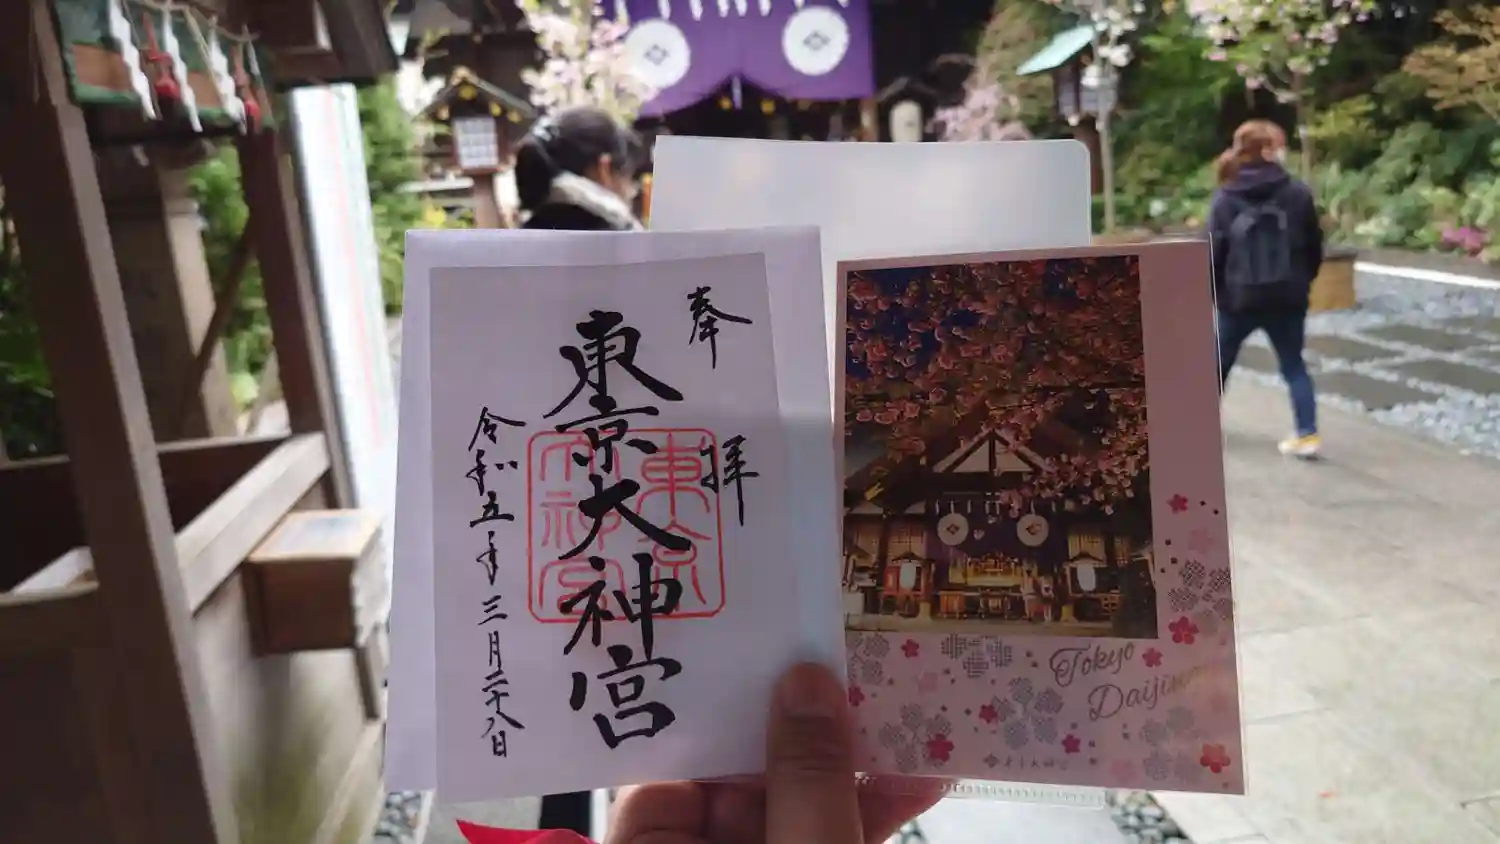 奉拝
東京大神宮
東京
大神宮
令和五年三月二十八日
Tokyo
Daijin